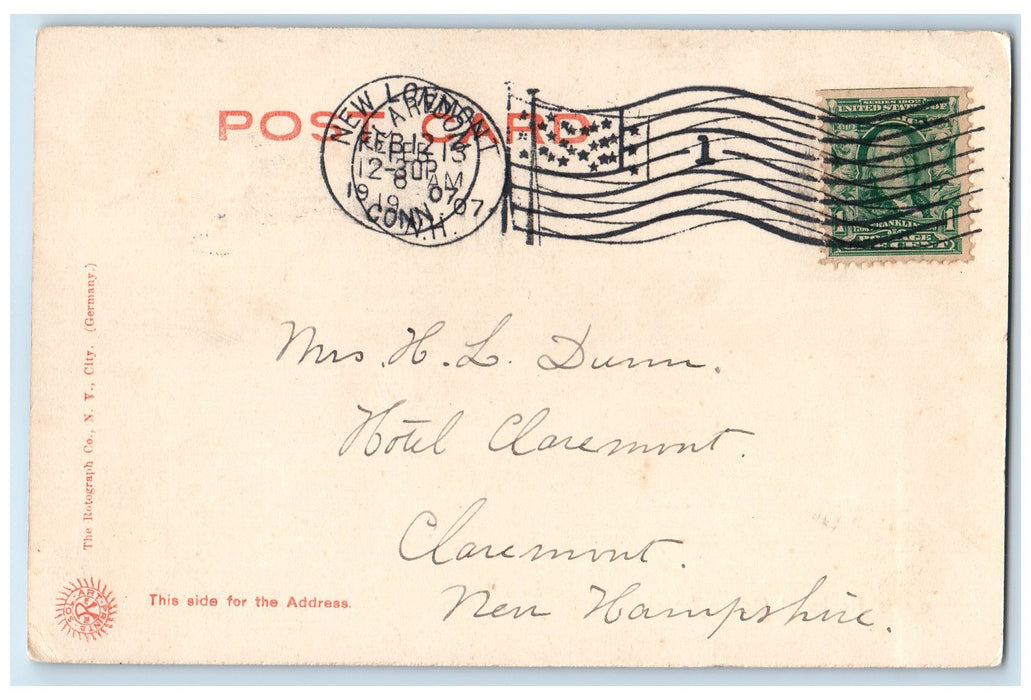 POST CARD
NEW LONDON
FEB 12
12-30P
1907
CONN.
FEB 13
8 AM
1907
N.H.
1
SERIES 1902
UNITED STATES OF
FRANKLIN
1 1
Mrs. H. L. Dunn.
Hotel Claremont.
Claremont.
New Hampshire.
The Rotograph Co., N. Y., City. (Germany.)
SOL-ART-PRINTS
This side for the Address.